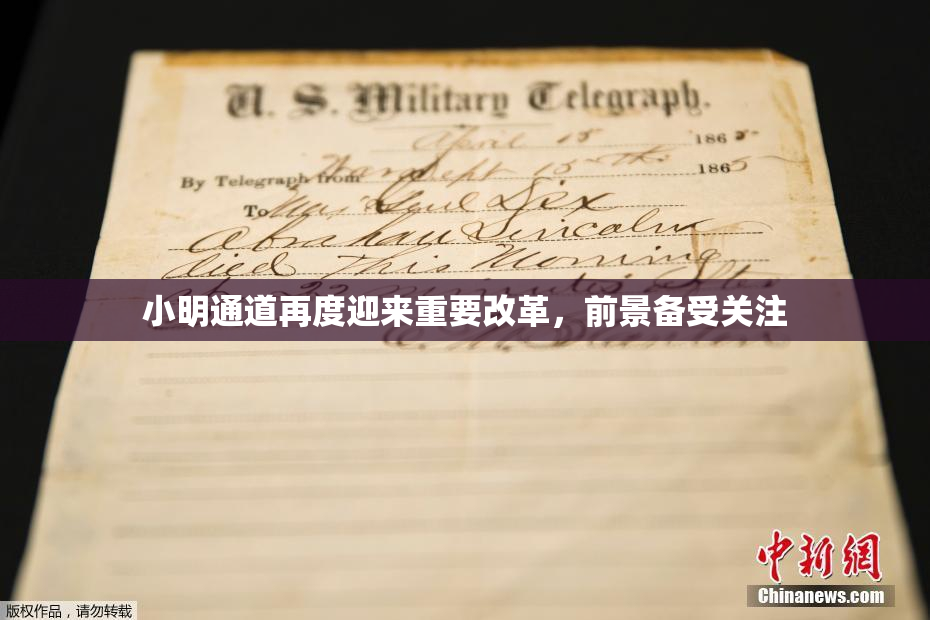 U. S. Military Telegraph.
April 15 1865
By Telegraph from War Dept 15th 1865
To Maj Genl Dix
Abraham Lincoln
died This Morning
22 minutes after
小明通道再度迎来重要改革，前景备受关注
中新網
Chinanews.com
版权作品，请勿转载